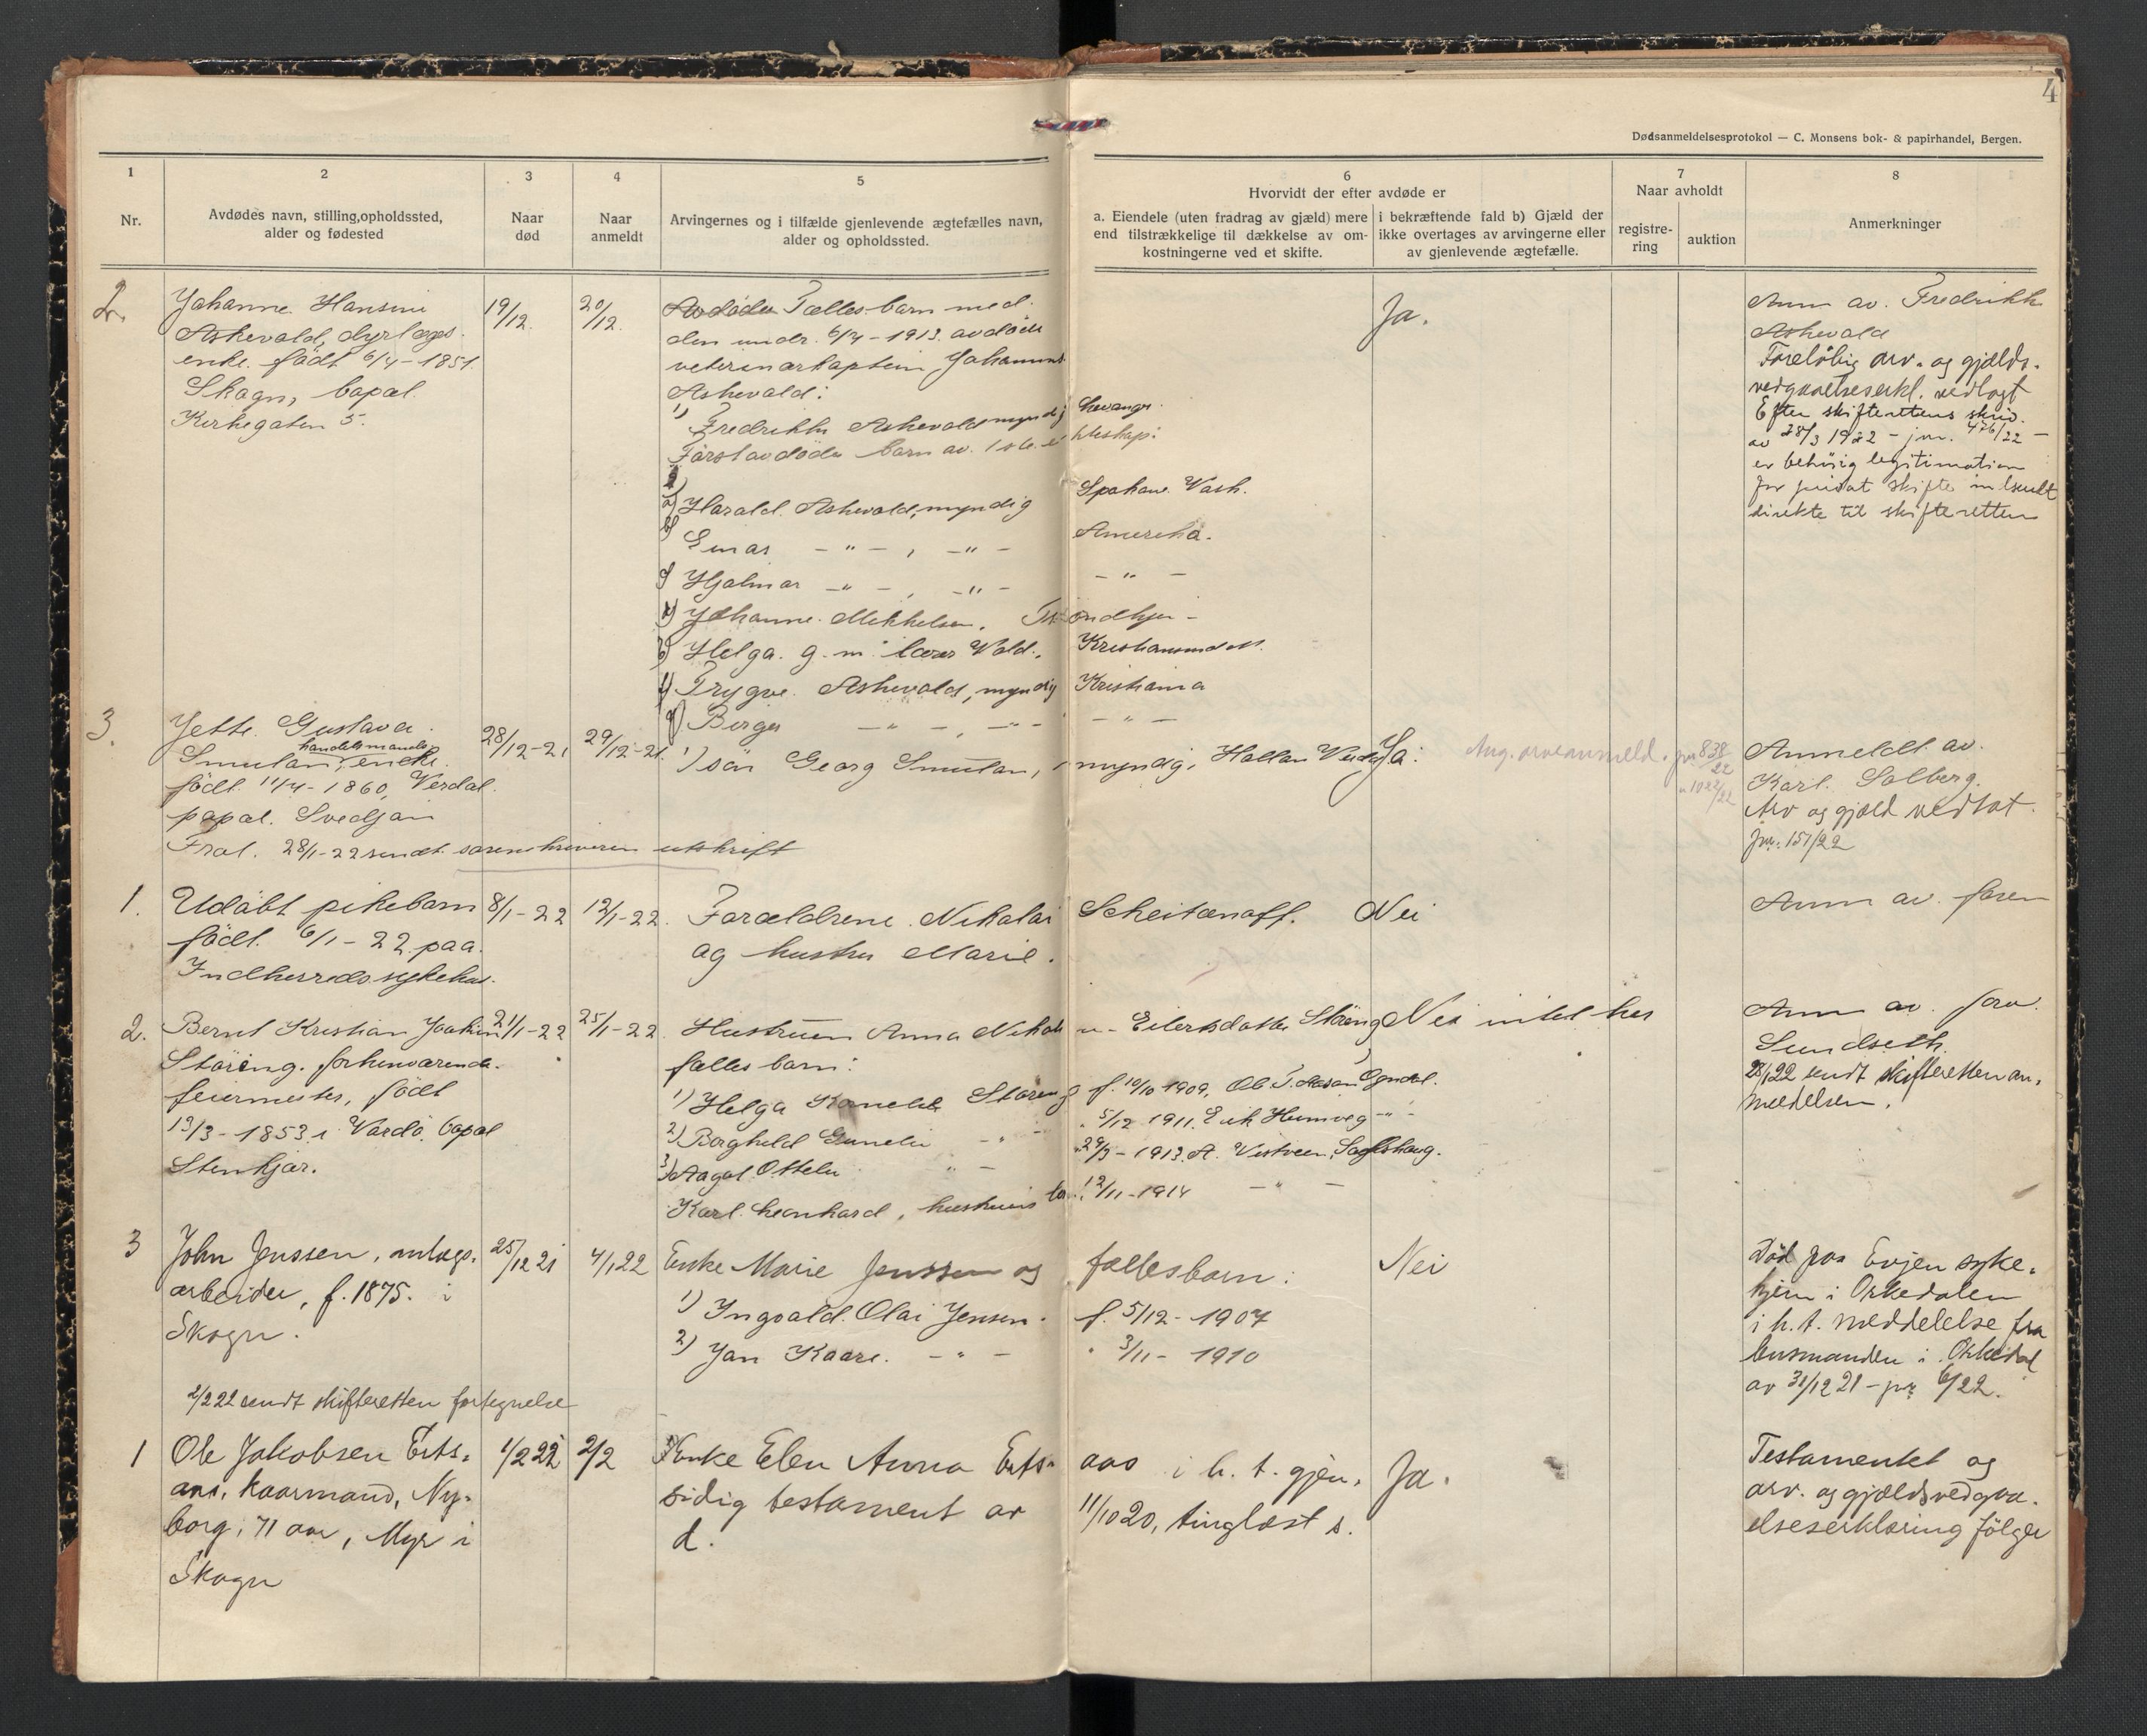 4
Dødsanmeldelsesprotokol — C. Monsens bok- & papirhandel, Bergen.
1
Nr.
2
Avdødes navn, stilling, opholdssted,
alder og fødested
3
Naar
død
4
Naar
anmeldt
5
Arvingernes og i tilfælde gjenlevende ægtefælles navn,
alder og opholdssted.
6
Hvorvidt der efter avdøde er
a. Eiendele (uten fradrag av gjæld) mere
end tilstrækkelige til dækkelse av om-
kostningerne ved et skifte.
i bekræftende fald b) Gjæld der
ikke overtages av arvingerne eller
av gjenlevende ægtefælle.
7
Naar avholdt
registre-
ring
auktion
8
Anmerkninger
2.
Johanne Hansine
Askevold, dyrlæges
enke. födt 6/4-1851.
Skogn, bopæl
Kirkegaten 5.
19/12.
20/12.
Avdødes Fælles barn med
den under 6/4-1913 avdøde
veterinærkaptein Johannes
Askevold:
1) Fredrikke Askevold myndig Levanger.
Førstavdødes barn av 1ste ekteskap:
a) Harald Askevold, myndig Spokane Wash.
b) Einar -"-, -"- Amerika.
c) Hjalmar -"-, -"- -"-
d) Johanne Mikkelsen. Trondhjem
e) Helga g.m. lærer Wold. Kristiansund
f) Trygve Askevold, myndig Kristiania
g) Borger -"-, -"- -"-
Ja.
Anm av. Fredrikke
Askevold
Foreløbig arv- og gjælds-
vedgaaelseserkl. vedlagt
Efter skifterettens skriv.
av 28/3 1922 - jnr. 476/22 -
er behørig legitimation
for privat skifte
direkte til skifteretten
3.
Jette Gustava
handelsmands
Smulan, enke.
födt 11/4-1860, Verdal.
bopæl. Svedjan
28/1-22 sendt sorenskriveren utskrift
28/12-21
29/12-21.
1) sön Georg Smulan, myndig, Hallan
Ja.
Ang. arveanmeld. jnr 838/22
" 1022/22
Anmeldt av.
Karl Solberg.
Arv og gjæld vedtat.
jnr. 151/22
1.
Udöbt pikebarn
födt 6/1-22 paa
Indherreds sykehus.
8/1-22
12/1-22.
Forældrene Nikolai Scheitanoff.
og hustru Marie.
Nei
Anm av. faren
2.
Bernt Kristian Joakim
Støring. forhenværende
feiermester, født
13/3-1853 i Vardø. bopæl
Stenkjær.
21/1-22
25/1-22.
Hustruen Anna Eilertsdatter Støring
fælles barn:
1) Helga Støreng f. 10/10 1909, Ogndal.
2) Borghild -"- " 5/12 1911, -"-
3) Aagot Ottelie -"- " 29/3-1913. A. Vistveen, Sagshaug.
Karl Leonhard, hustruens barn. 12/11-1914 -"-
Nei intet her
Anm av. fru
Sundseth
28/1 22 sendt skifteretten an-
meldelsen.
3
John Jenssen, anlægs-
arbeider, f. 1875. i
Skogn.
2/2 22 sendt skifteretten fortegnelse
25/12 21
4/1 22
Enke Marie Jenssen og fællesbarn:
1) Ingvald Olai Jensen. f. 5/12-1907
2) Jan Kaare. -"- " 3/11-1910
Nei
Død paa Evjen syke-
hjem i Orkedalen
i h.t. meddelelse fra
lensmanden i Orkedal
av 31/12 21 - jnr 6/22.
1
Ole Jakobsen Erts-
aas, kaarmand, Ny-
borg, 71 aar, Myr i
Skogn
1/2 22
2/2
Enke Elen Anna Ertsaas i h.t. gjen-
sidig testament av 11/10 20, tinglæst s.
d.
Ja.
Testamentet og
arv- og gjældsvedgaa-
elseserklæring følger